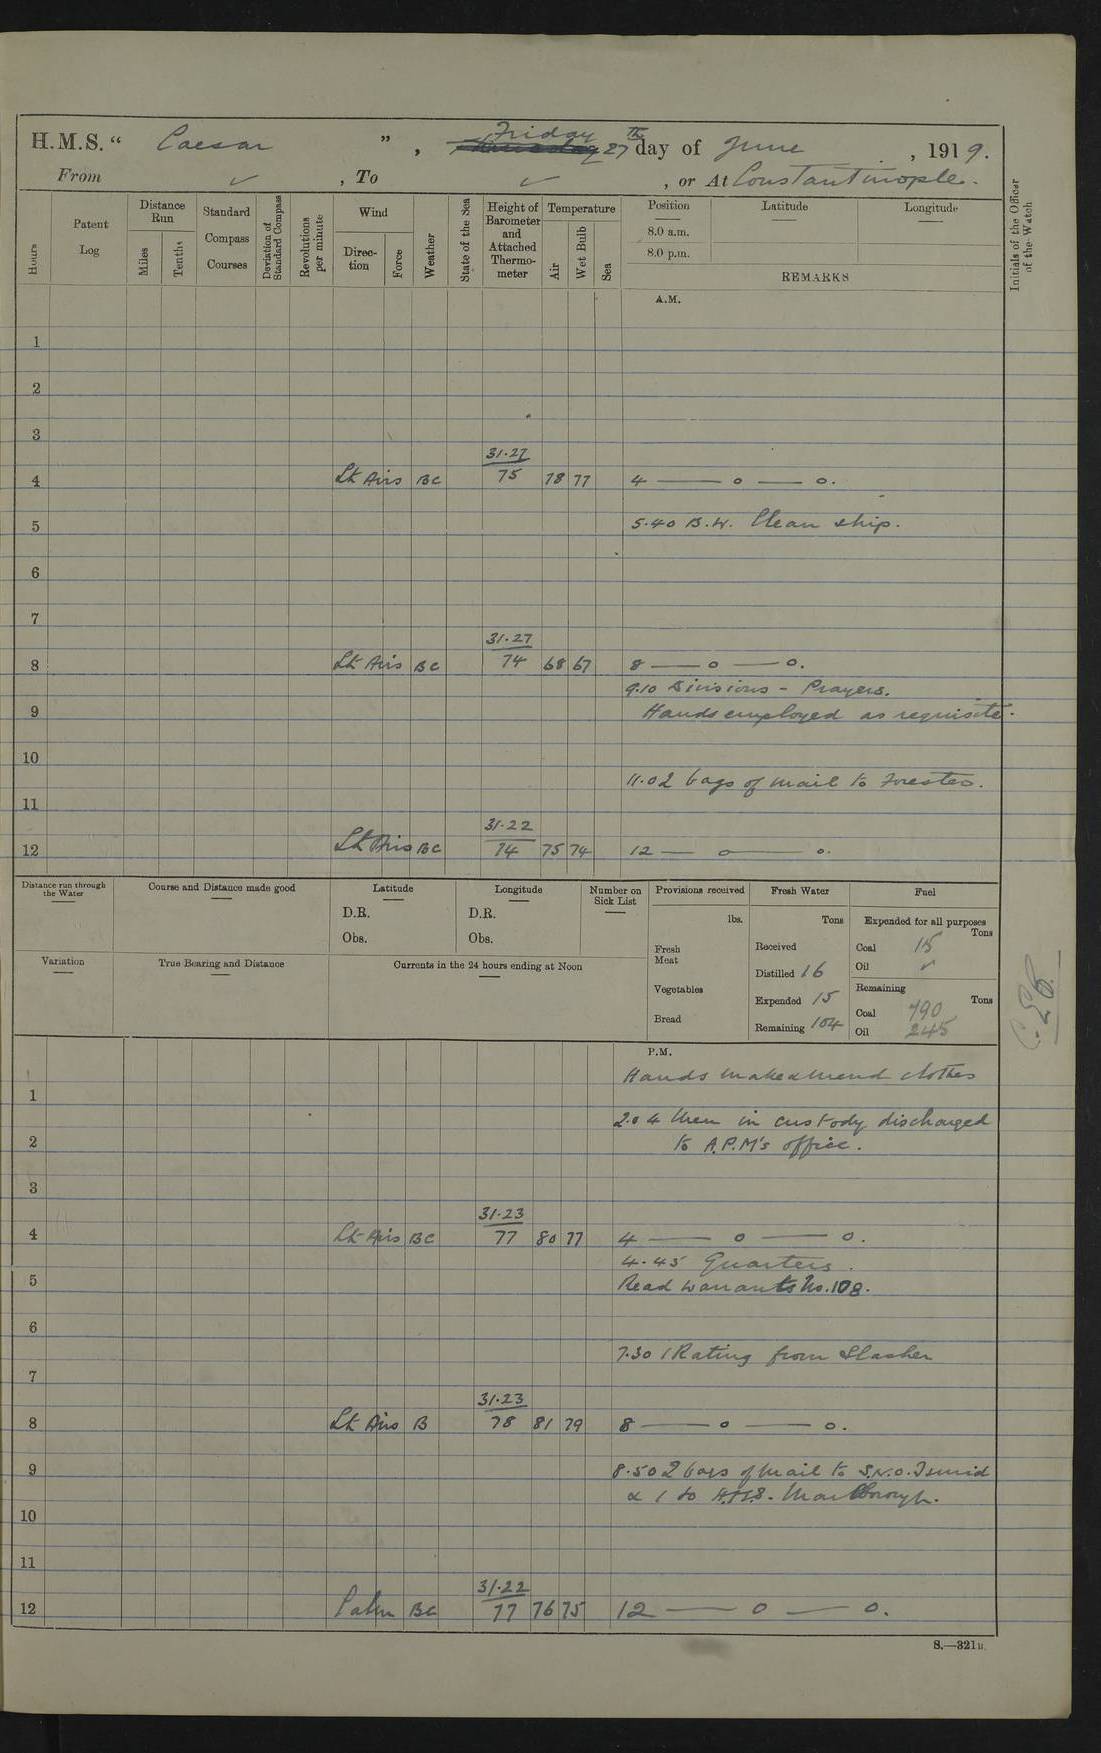 H.M.S. “ Caesar ” , Friday 27th day of June , 1919.
From ✓ , To ✓ , or At Constantinople.
Hours
Patent Log
Distance Run
Miles
Tenths
Standard Compass Courses
Deviation of Standard Compass
Revolutions per minute
Wind
Direction
Force
Weather
State of the Sea
Height of Barometer and Attached Thermometer
Temperature
Air
Wet Bulb
Sea
Position
8.0 a.m.
8.0 p.m.
Latitude
Longitude
REMARKS
Initials of the Officer of the Watch
A.M.
1
2
3
31.27
4 Lt Airs BC 75 78 77 4 — o — o.
5 5.40 B.W. Clean ship.
6
7
31.27
8 Lt Airs BC 74 68 67 8 — o — o.
9.10 Divisions - Prayers.
9 Hands employed as requisite.
10
11.0 2 bags of mail to Forester.
11
31.22
12 Lt Airs BC 74 75 74 12 — o — o.
Distance run through the Water
Course and Distance made good
Latitude
D.R.
Obs.
Longitude
D.R.
Obs.
Number on Sick List
Provisions received
lbs.
Fresh Meat
Vegetables
Bread
Fresh Water
Tons
Received
Distilled 16
Expended 15
Remaining 104
Fuel
Expended for all purposes
Tons
Coal 15
Oil ✓
Remaining
Tons
Coal 790
Oil 245
Variation
True Bearing and Distance
Currents in the 24 hours ending at Noon
P.M.
Hands make & mend clothes
1
2.0 4 men in custody discharged
2 to A.P.M's office.
3
31.23
4 Lt Airs BC 77 80 77 4 — o — o.
4.45 Quarters.
5 Read warrants No. 108.
6
7.30 1 Rating from Slasher
7
31.23
8 Lt Airs B 78 81 79 8 — o — o.
9 8.50 2 bags of mail to S.N.O. Ismid
& 1 to H.M.S. Marlborough.
10
11
31.22
12 Calm BC 77 76 75 12 — o — o.
S.—321